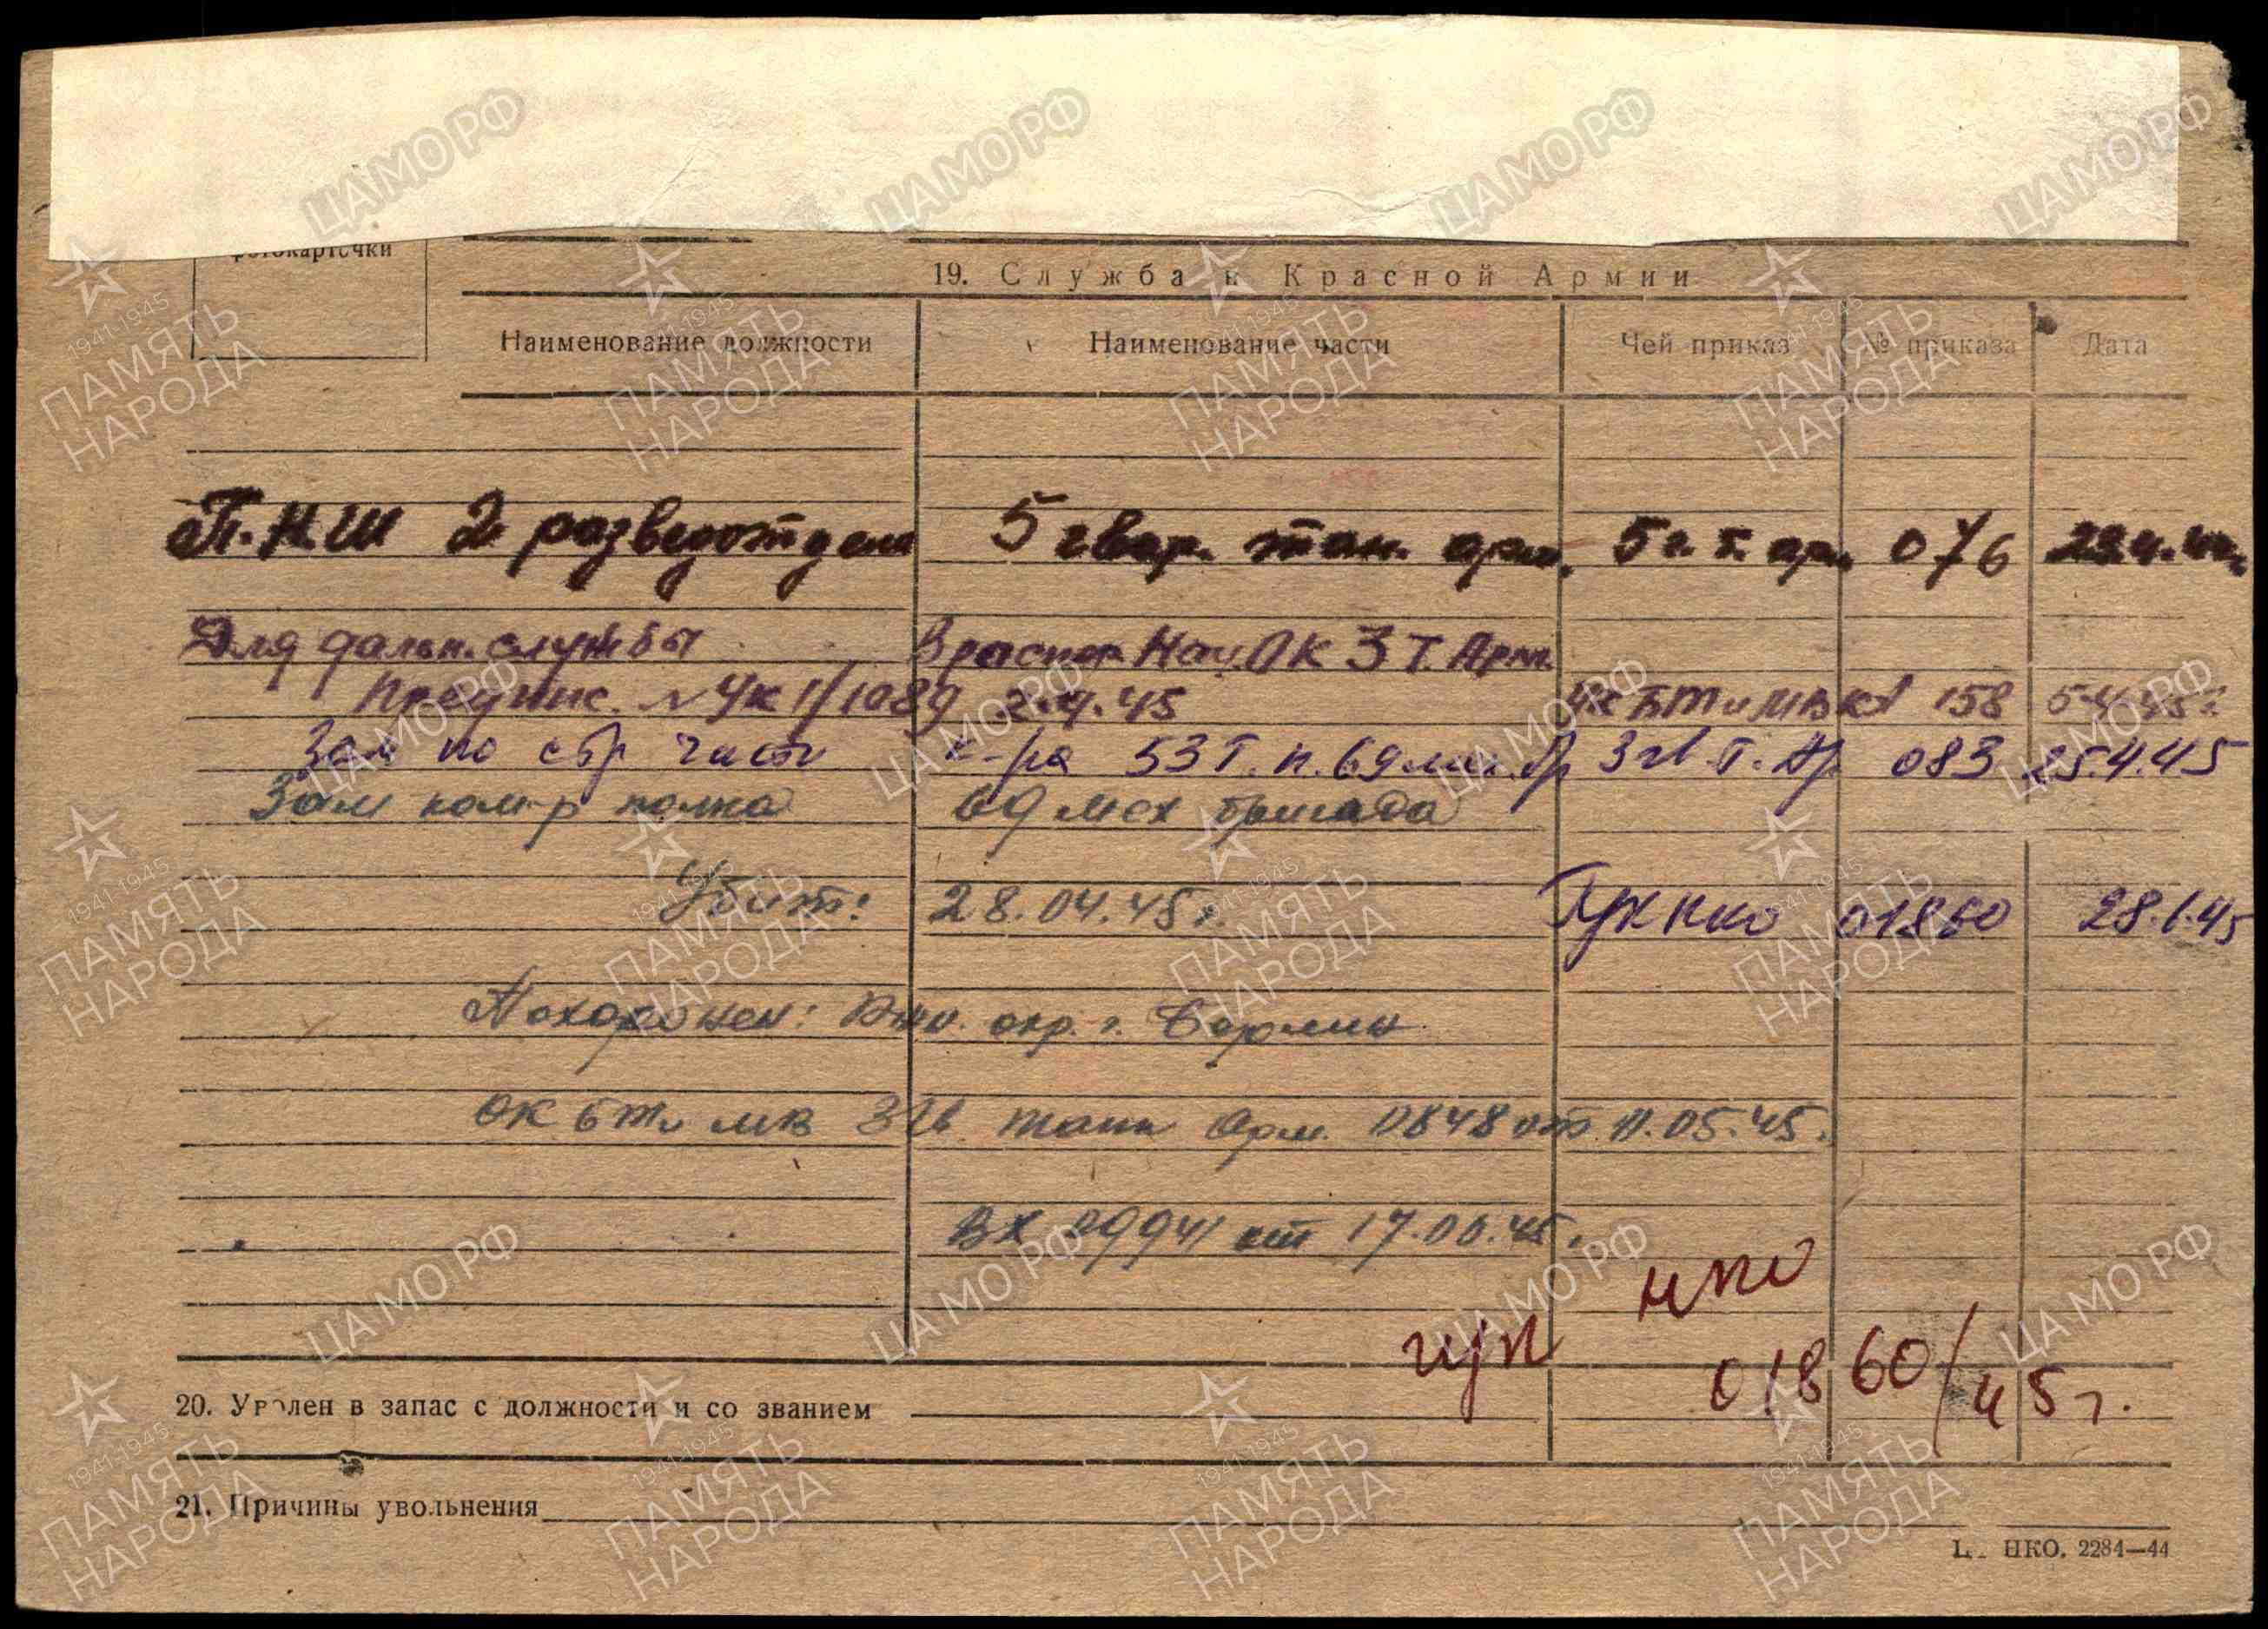 фотокарточки
19. Служба в Красной Армии
Наименование должности Наименование части Чей приказ № приказа Дата
П.Н.Ш 2 разведотдела 5 гвар. тан. арм. 5 г. т. ар. 076
Для дальн. службы В распор. Нач. ОК 3 Т. Арм.
Предпис. № УК 1/1089 2.4.45 УК БТ и МВ КА 158 5.4.45 г.
Зам по стр части к-ра 53 т. п. 69 мех. бр 3 гв. Т. Ар. 083 25.4.45
Зам ком-р полка 69 мех бригада
Убит: 28.04.45 г. ГУК НКО 01860
Похоронен: Южн. окр. г. Берлин
ОК БТ и МВ 3 Гв танк Арм. 0848 от 11.05.45.
Вх 09941 от 17.06.45.
гук нко
01860/45 г.
20. Уволен в запас с должности и со званием
21. Причины увольнения
НКО. 2284—44
ЦАМО.РФ
1941-1945
ПАМЯТЬ
НАРОДА